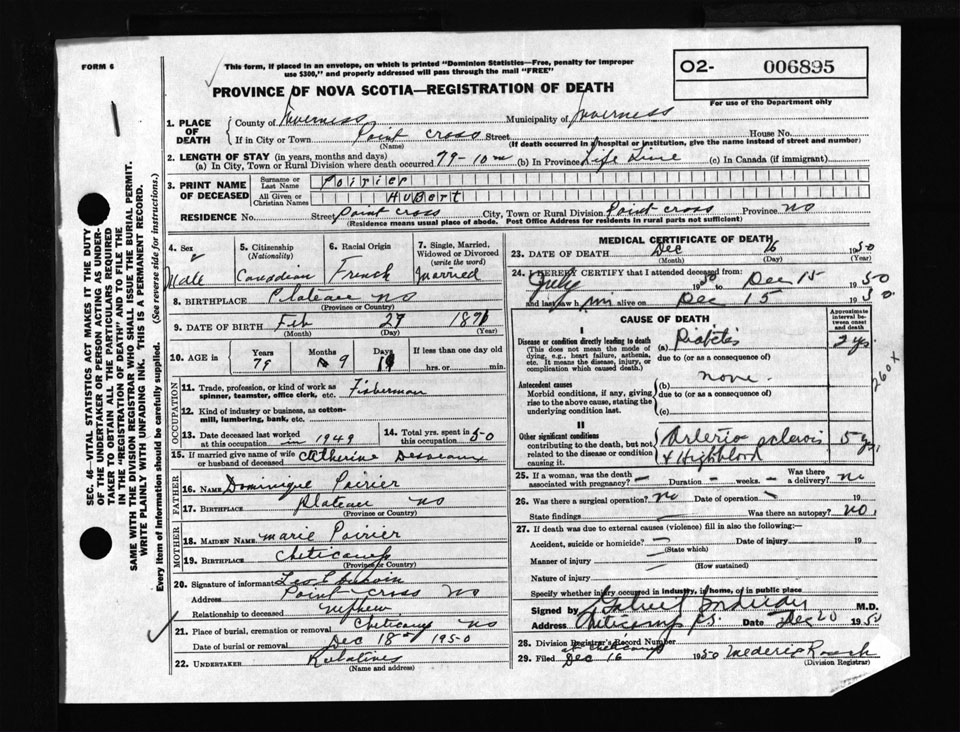 FORM 6
This form, if placed in an envelope, on which is printed "Dominion Statistics—Free, penalty for improper
use $300," and properly addressed will pass through the mail "FREE"
O2- 006895
For use of the Department only
PROVINCE OF NOVA SCOTIA—REGISTRATION OF DEATH
1. PLACE OF DEATH
County of Inverness Municipality of Inverness
If in City or Town Point Cross Street House No.
(Name) (If death occurred in a hospital or institution, give the name instead of street and number)
2. LENGTH OF STAY (in years, months and days)
(a) In City, Town or Rural Division where death occurred 79-10m (b) In Province Life Time (c) In Canada (if immigrant)
3. PRINT NAME OF DECEASED
Surname or Last Name Poirier
All Given or Christian Names Hubert
RESIDENCE No. Street Point Cross City, Town or Rural Division Point Cross Province NS
(Residence means usual place of abode. Post Office Address for residents in rural parts not sufficient)
4. Sex Male
5. Citizenship (Nationality) Canadian
6. Racial Origin French
7. Single, Married, Widowed or Divorced (write the word) Married
8. BIRTHPLACE Plateau NS
(Province or Country)
9. DATE OF BIRTH Feb 27 1871
(Month) (Day) (Year)
10. AGE in Years 79 Months 9 Days If less than one day old hrs. or min.
OCCUPATION
11. Trade, profession, or kind of work as spinner, teamster, office clerk, etc. Fisherman
12. Kind of industry or business, as cotton-mill, lumbering, bank, etc.
13. Date deceased last worked at this occupation in 1949
14. Total yrs. spent in this occupation 50
15. If married give name of wife or husband of deceased Catherine Desveaux
FATHER
16. NAME Dominique Poirier
17. BIRTHPLACE Plateau NS
(Province or Country)
MOTHER
18. MAIDEN NAME Marie Poirier
19. BIRTHPLACE Cheticamp
(Province or Country)
20. Signature of informant
Address Point Cross NS
Relationship to deceased nephew
21. Place of burial, cremation or removal Cheticamp NS
Date of burial or removal Dec 18 1950
22. UNDERTAKER Relatives
(Name and address)
MEDICAL CERTIFICATE OF DEATH
23. DATE OF DEATH Dec 16 1950
(Month) (Day) (Year)
24. I HEREBY CERTIFY that I attended deceased from:
July 1950 to Dec 15 1950
and last saw him alive on Dec 15 1950
CAUSE OF DEATH
Approximate interval between onset and death
I
Disease or condition directly leading to death (a) Diabetis 2 ys
(This does not mean the mode of dying, e.g., heart failure, asthenia, etc. It means the disease, injury, or complication which caused death.)
due to (or as a consequence of)
260 x
Antecedent causes (b) none
Morbid conditions, if any, giving rise to the above cause, stating the underlying condition last.
due to (or as a consequence of)
(c)
II
Other significant conditions contributing to the death, but not related to the disease or condition causing it.
Arterio sclerosis 5 ys
& High blood
25. If a woman, was the death associated with pregnancy? — Duration — weeks. — Was there a delivery? no
26. Was there a surgical operation? no Date of operation — 19
State findings — Was there an autopsy? no
27. If death was due to external causes (violence) fill in also the following:—
Accident, suicide or homicide? — Date of injury 19
(State which)
Manner of injury —
(How sustained)
Nature of injury —
Specify whether injury occurred in industry, in home, or in public place
Signed by M.D.
Address Cheticamp Date Dec 20 1950
28. Division Registrar's Record Number
at Cheticamp
29. Filed Dec 16 1950
(Division Registrar)
SEC. 46—VITAL STATISTICS ACT MAKES IT THE DUTY
OF THE UNDERTAKER OR PERSON ACTING AS UNDER-
TAKER TO OBTAIN ALL THE PARTICULARS REQUIRED
IN THE "REGISTRATION OF DEATH" AND TO FILE THE
SAME WITH THE DIVISION REGISTRAR WHO SHALL ISSUE THE BURIAL PERMIT.
WRITE PLAINLY WITH UNFADING INK. THIS IS A PERMANENT RECORD.
Every item of Information should be carefully supplied. (See reverse side for instructions.)